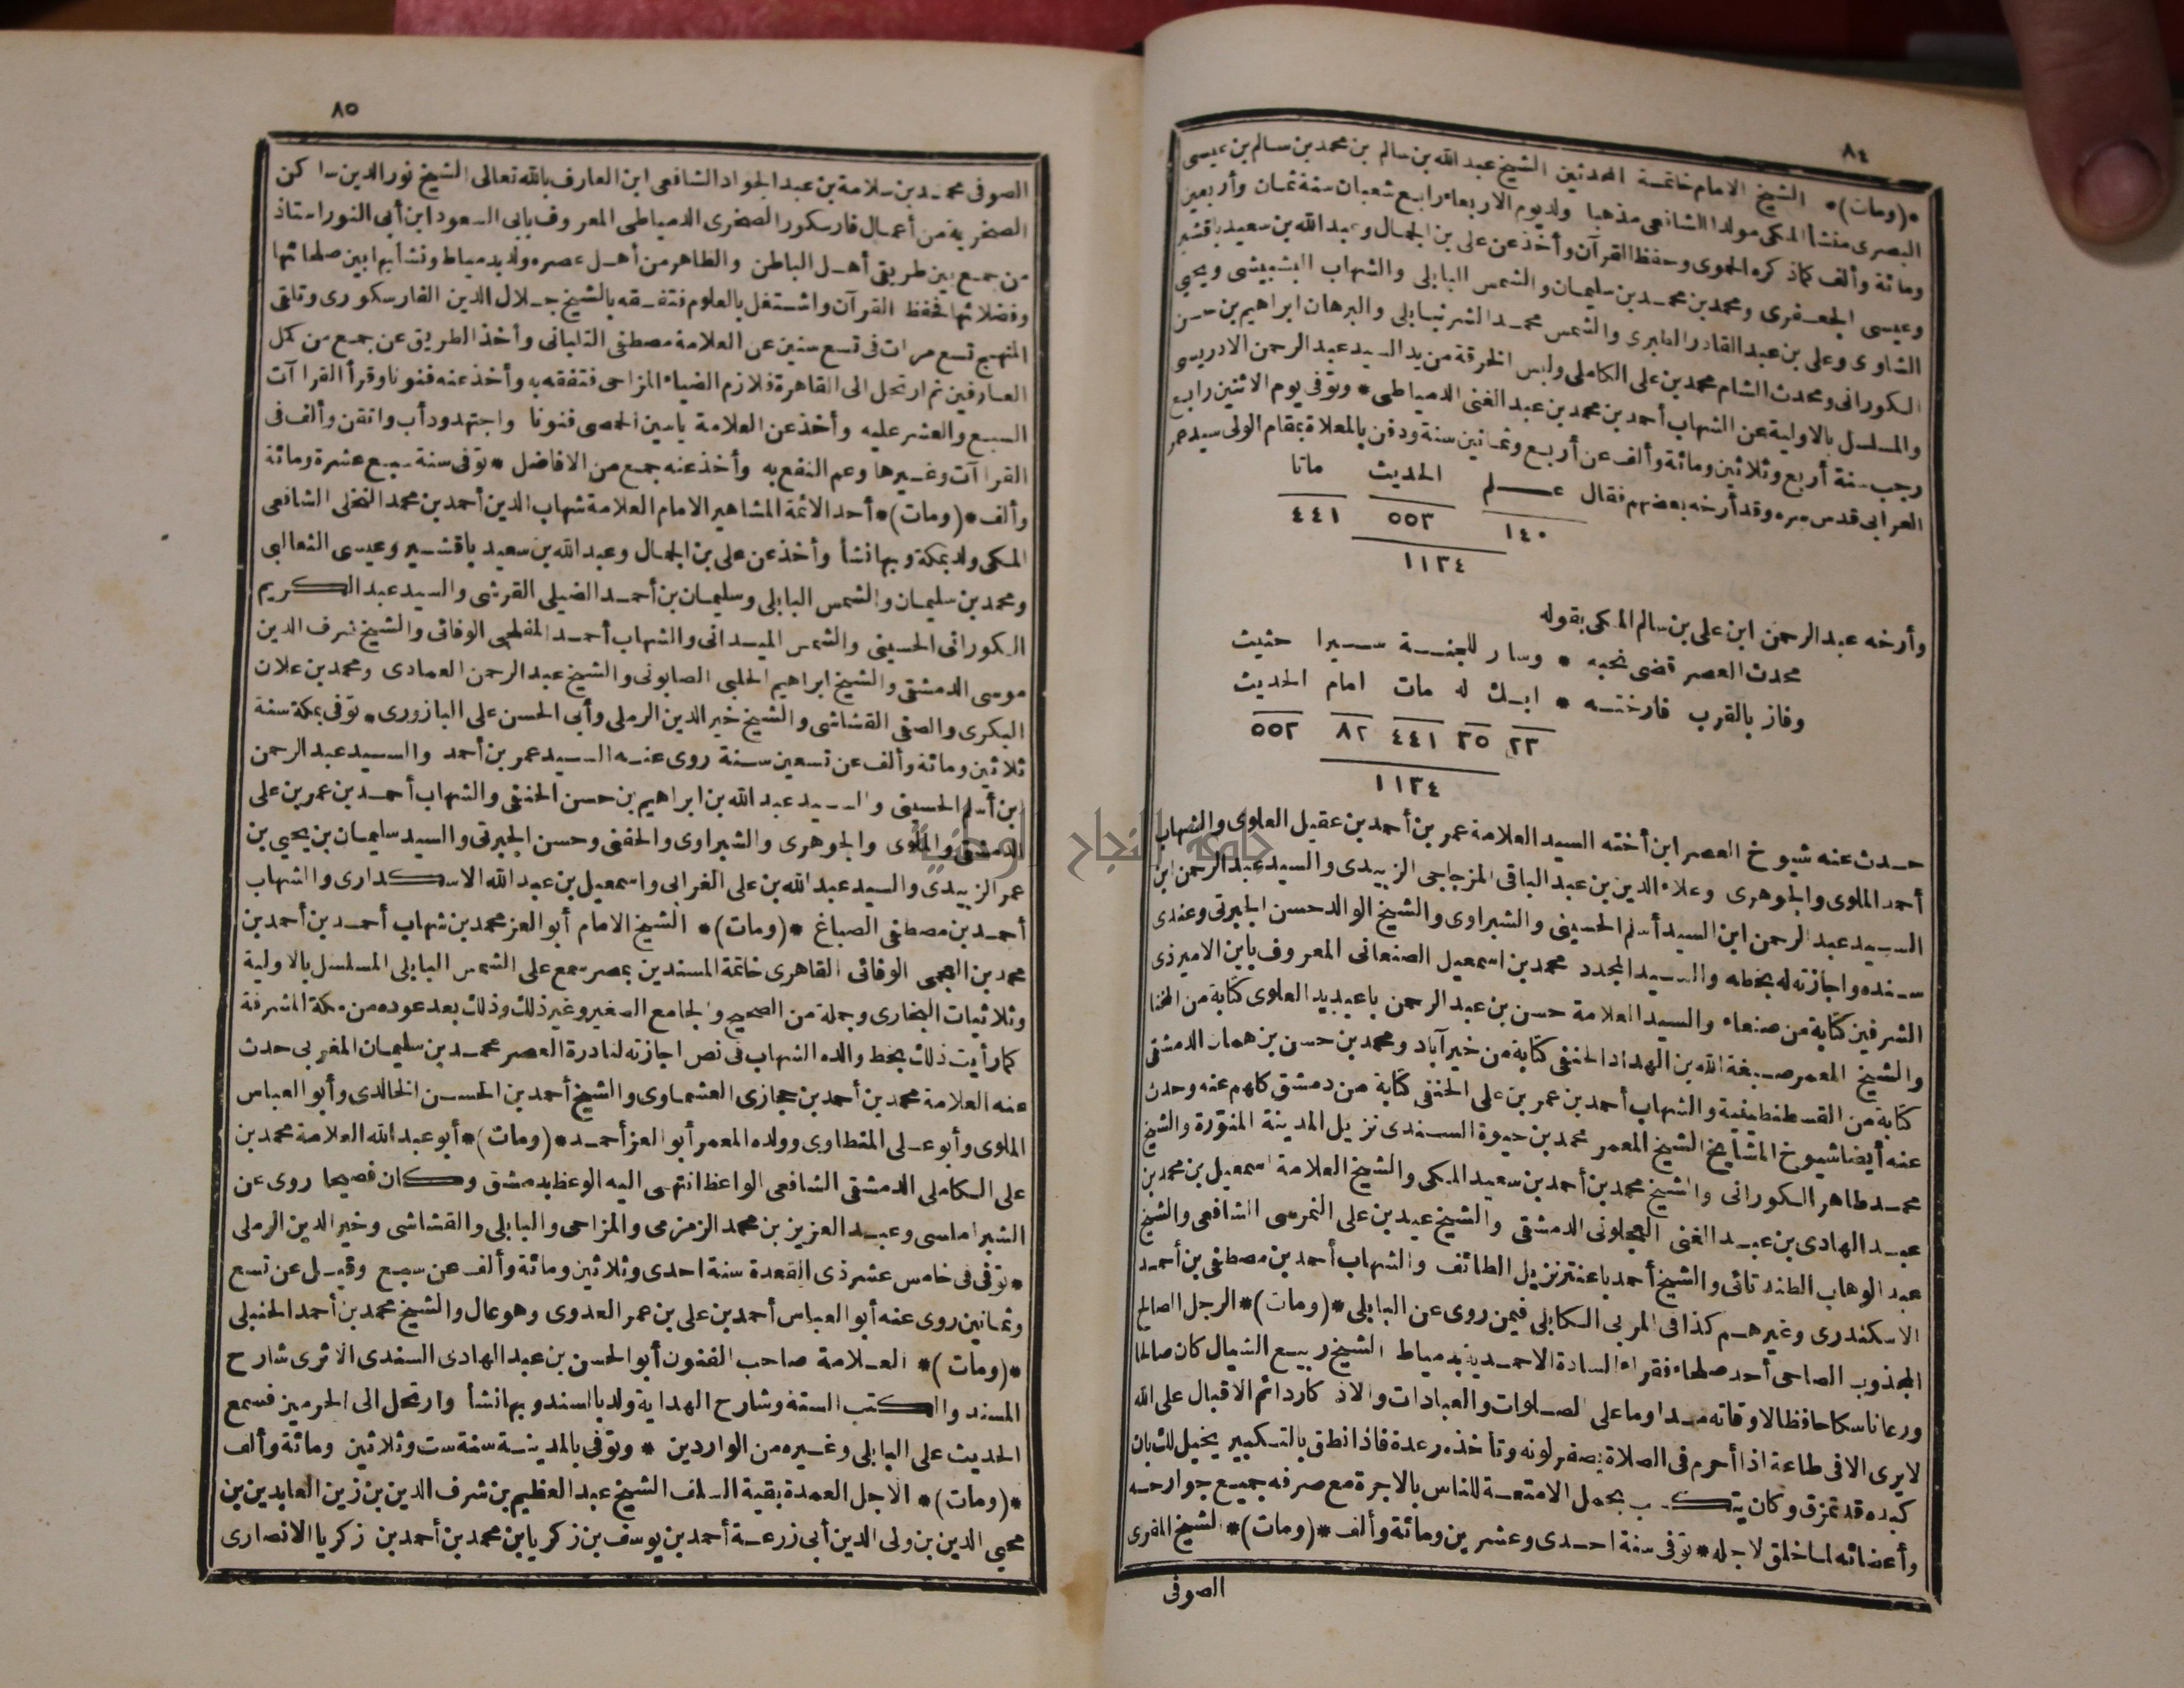 ٨٤
*(ومات)* الشيخ الامام خاتمة المحدثين الشيخ عبد الله بن سالم بن محمد بن سالم بن عيسى
البصرى منشأ المكى مولدا الشافعى مذهبا ولد يوم الاربعاء رابع شعبان سنة ثمان وأربعين
ومائة وألف كماذ كره الحموى وحفظ القرآن وأخذ عن على بن الجمال وعبد الله بن سعيد باقشير
وعيسى الجعفرى ومحمد بن محمد بن سليمان والشمس البابلى والشهاب البشبيشى ويحيى
الشاوى وعلى بن عبد القادر الطبرى والشمس محمد الشرنبابلى والبرهان ابراهيم بن حسن
الكورانى ومحدث الشام محمد بن على الكاملى ولبس الخرقة من يد السيد عبد الرحمن الادريسى
والمسلسل بالاولية عن الشهاب أحمد بن محمد بن عبد الغنى الدمياطى * وتوفى يوم الاثنين رابع
رجب سنة أربع وثلاثين ومائة وألف عن أربع وثمانين سنة ودفن بالمعلاة بمقام الولى سيدعمر
العرابى قدس سره وقد أرخه بعضهم فقال علم الحديث ماتا
١٤٠ ٥٥٣ ٤٤١
١١٣٤
وأرخه عبد الرحمن ابن على بن سالم المكى بقوله
محدث العصر قضى نحبه * وسار للجنة سيرا حثيث
وفاز بالقرب فارخته * ابك له مات امام الحديث
٢٣ ٣٥ ٤٤١ ٨٢ ٥٥٣
١١٣٤
حدث عنه شيوخ العصر ابن أخته السيد العلامة عمر بن أحمد بن عقيل العلوى والشهاب
أحمد الملوى والجوهرى وعلاء الدين بن عبد الباقى المزجاجى الزبيدى والسيد عبد الرحمن ابن
السيد عبد الرحمن ابن السيد أسلم الحسينى والشبراوى والشيخ الوالد حسن الجبرتى وعندى
سنده واجازته له بخطه والسيد المجدد محمد بن اسمعيل الصنعانى المعروف بابن الاميرذى
الشرفين كتابة من صنعاء والسيد العلامة حسن بن عبد الرحمن باعيديد العلوى كتابة من المخا
والشيخ المعمر صبغة الله بن الهداد الحنفى كتابة من خيرآباد ومحمد بن حسن بن همات الدمشقى
كتابة من القسطنطينية والشهاب أحمد بن عمر بن على الحنفى كتابة من دمشق كلهم عنه وحدث
عنه أيضا شيوخ المشايخ الشيخ المعمر محمد بن حيوة السندى نزيل المدينة المنورة والشيخ
محمد طاهر الكورانى والشيخ محمد بن أحمد بن سعيد المكى والشيخ العلامة اسمعيل بن محمد بن
عبد الهادى بن عبد الغنى العجلونى الدمشقى والشيخ عيد بن على النمرسى الشافعى والشيخ
عبد الوهاب الطندتائى والشيخ أحمد باعنتر نزيل الطائف والشهاب أحمد بن مصطفى بن أحمد
الاسكندرى وغيرهم كذا فى المربى الكابلى فيمن روى عن البابلى *(ومات)* الرجل الصالح
المجذوب الصاحى أحد صلحاء فقراء السادة الاحمدية بدمياط الشيخ ربيع الشيال كان صالحا
ورعا ناسكا حافظا لاوقاته مداوما على الصلوات والعبادات والاذكار دائم الاقبال على الله
لا يرى الا فى طاعة اذا أحرم فى الصلاة يصفر لونه وتأخذه رعدة فاذا نطق بالتكبير يخيل لك بان
كبده قد تمزق وكان يتكسب بحمل الامتعة للناس بالاجرة مع صرفه جميع جوارحه
وأعضائه لما خلق لاجله * توفى سنة احدى وعشرين ومائة وألف *(ومات)* الشيخ المقرى
الصوفى
٨٥
الصوفى محمد بن سلامة بن عبد الجواد الشافعى ابن العارف بالله تعالى الشيخ نور الدين ساكن
الصخرية من أعمال فارسكور الصخرى الدمياطى المعروف بابى السعود ابن أبى النور استاذ
من جمع بين طريقى أهل الباطن والظاهر من أهل عصره ولد بدمياط ونشأ بها بين صلحائها
وفضلائها فحفظ القرآن واشتغل بالعلوم فتفقه بالشيخ جلال الدين الفارسكورى وتلقى
المنهج تسع مرات فى تسع سنين عن العلامة مصطفى التلبانى وأخذ الطريق عن جمع من كمل
العارفين ثم ارتحل الى القاهرة فلازم الضياء المزاحى فتفقه به وأخذ عنه فنونا وقرأ القرا آت
السبع والعشر عليه وأخذ عن العلامة ياسين الحمصى فنونا واجتهد ودأب واتقن وألف فى
القرا آت وغيرها وعم النفع به وأخذ عنه جمع من الافاضل * توفى سنة سبع عشرة ومائة
وألف *(ومات)* أحد الائمة المشاهير الامام العلامة شهاب الدين أحمد بن محمد النخلى الشافعى
المكى ولد بمكة وبها نشأ وأخذ عن على بن الجمال وعبد الله بن سعيد باقشير وعيسى الثعالبى
ومحمد بن سليمان والشمس البابلى وسليمان بن أحمد الضيلى القرشى والسيد عبد الكريم
الكورانى الحسينى والشمس الميدانى والشهاب أحمد المفلحى الوفائى والشيخ شرف الدين
موسى الدمشقى والشيخ ابراهيم الحلبى الصابونى والشيخ عبد الرحمن العمادى ومحمد بن علان
البكرى والصفى القشاشى والشيخ خير الدين الرملى وأبى الحسن على البازورى * توفى بمكة سنة
ثلاثين ومائة وألف عن تسعين سنة روى عنه السيد عمر بن أحمد والسيد عبد الرحمن
ابن أسلم الحسينى والسيد عبد الله بن ابراهيم بن حسن الحنفى والشهاب أحمد بن عمر بن على
الدمشقى والملوى والجوهرى والشبراوى والحفنى وحسن الجبرتى والسيد سليمان بن يحيى بن
عمر الزبيدى والسيد عبد الله بن على الغرابى واسمعيل بن عبد الله الاسكدارى والشهاب
أحمد بن مصطفى الصباغ *(ومات)* الشيخ الامام أبو العز محمد بن شهاب أحمد بن أحمد بن
محمد بن العجمى الوفائى القاهرى خاتمة المسندين بمصر سمع على الشمس البابلى المسلسل بالاولية
وثلاثيات البخارى وجملة من الصحيح والجامع الصغير وغير ذلك وذلك بعد عوده من مكة المشرفة
كما رأيت ذلك بخط والده الشهاب فى نص اجازته لنادرة العصر محمد بن سليمان المغربى حدث
عنه العلامة محمد بن أحمد بن حجازى العشماوى والشيخ أحمد بن الحسن الخالدى وأبو العباس
الملوى وأبو على المنطاوى وولده المعمر أبو العز أحمد *(ومات)* أبو عبد الله العلامة محمد بن
على الكاملى الدمشقى الشافعى الواعظ انتهى اليه الوعظ بدمشق وكان فصيحا روى عن
الشبراملسى وعبد العزيز بن محمد الزمزمى والمزاحى والبابلى والقشاشى وخير الدين الرملى
* توفى فى خامس عشر ذى القعدة سنة احدى وثلاثين ومائة وألف عن سبع وقيل عن تسع
وثمانين روى عنه أبو العباس أحمد بن على بن عمر العدوى وهو عال والشيخ محمد بن أحمد الحنبلى
*(ومات)* العلامة صاحب الفنون أبو الحسن بن عبد الهادى السندى الاثرى شارح
المسند والكتب الستة وشارح الهداية ولد بالسند وبها نشأ وارتحل الى الحرمين فسمع
الحديث على البابلى وغيره من الواردين * وتوفى بالمدينة سنة ست وثلاثين ومائة وألف
*(ومات)* الاجل العمدة بقية السلف الشيخ عبد العظيم بن شرف الدين بن زين العابدين بن
محيى الدين بن ولى الدين أبى زرعة أحمد بن يوسف بن زكريا بن محمد بن أحمد بن زكريا الانصارى
جامعة النجاح الوطنية